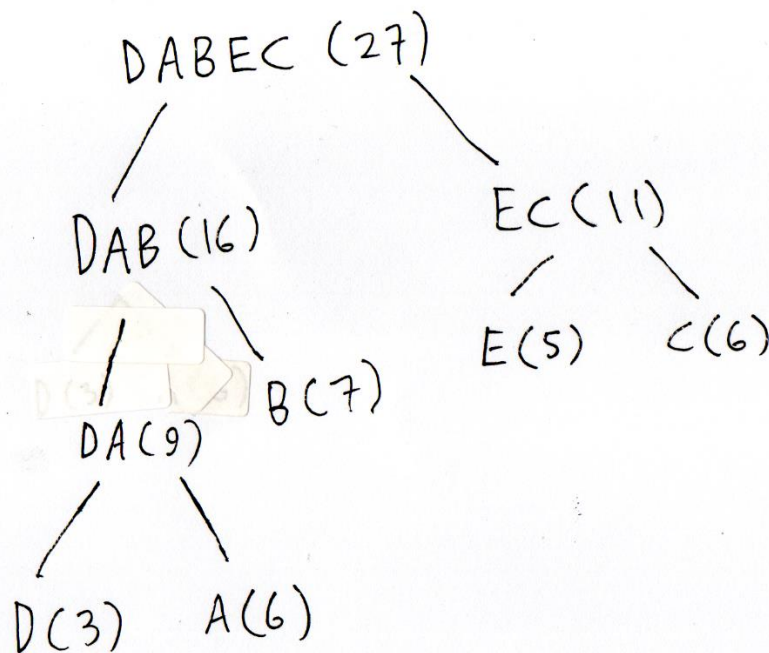 DABEC (27)
DAB (16) EC (11)
E(5) C(6)
B(7)
DA(9)
D(3) A(6)